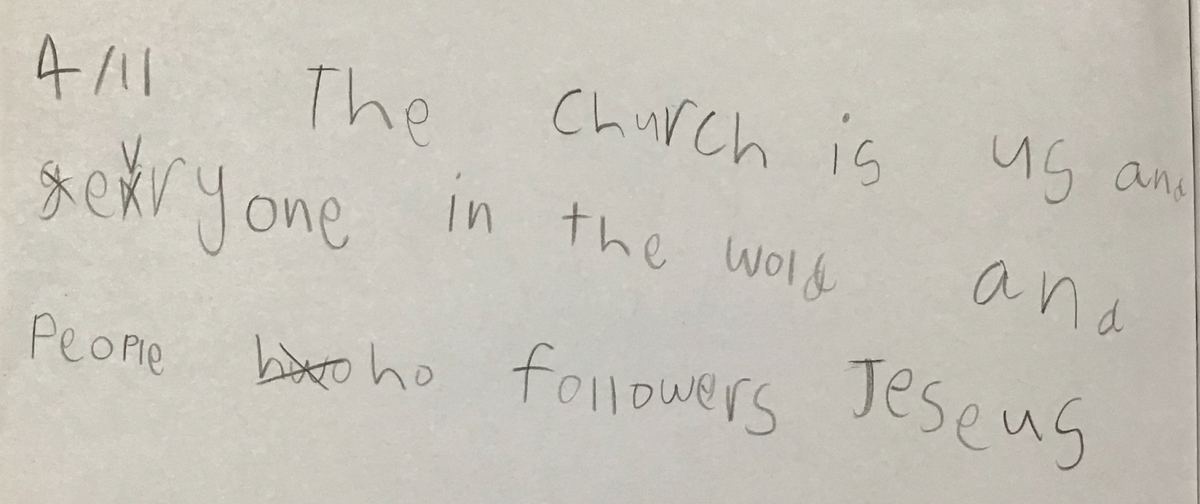 4/11 The Church is us and
everyone in the wold and
People ho followers Jeseus